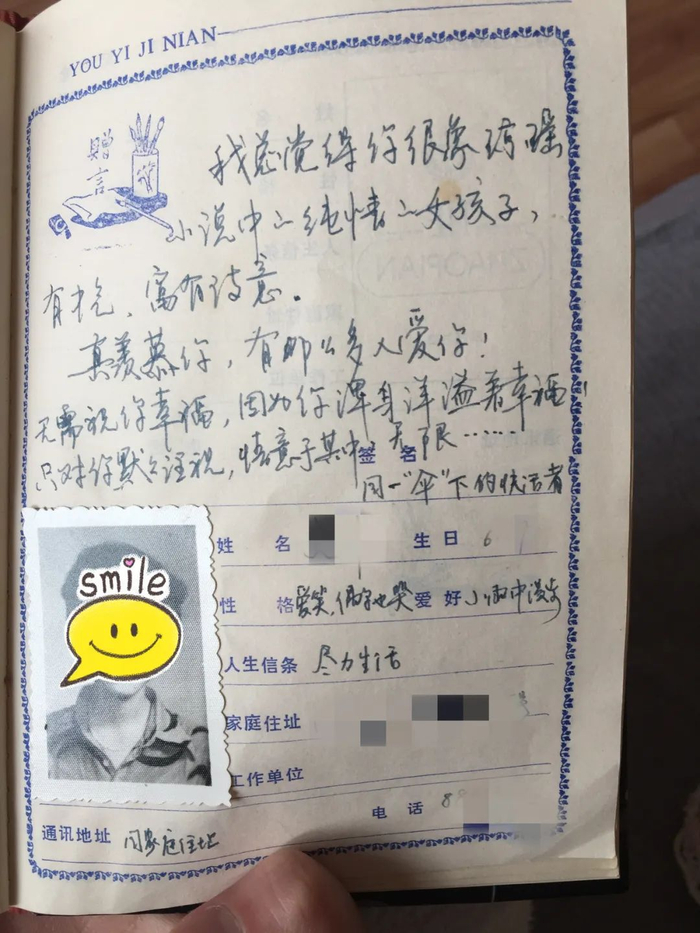 YOU YI JI NIAN
赠言
我总觉得你很像琼瑶
小说中的纯情的女孩子，
有才，富有诗意。
真羡慕你，有那么多人爱你！
无需祝你幸福，因为你浑身洋溢着幸福！
只对你默默注视，情意于其中，无限……
签 名
同一“伞”下的快活者
smile
姓 名 生日 6
性 格 爱笑，偶尔也哭 爱好 小雨中漫步
人生信条 尽力生活
家庭住址
工作单位
电 话 8
通讯地址 同家庭住址